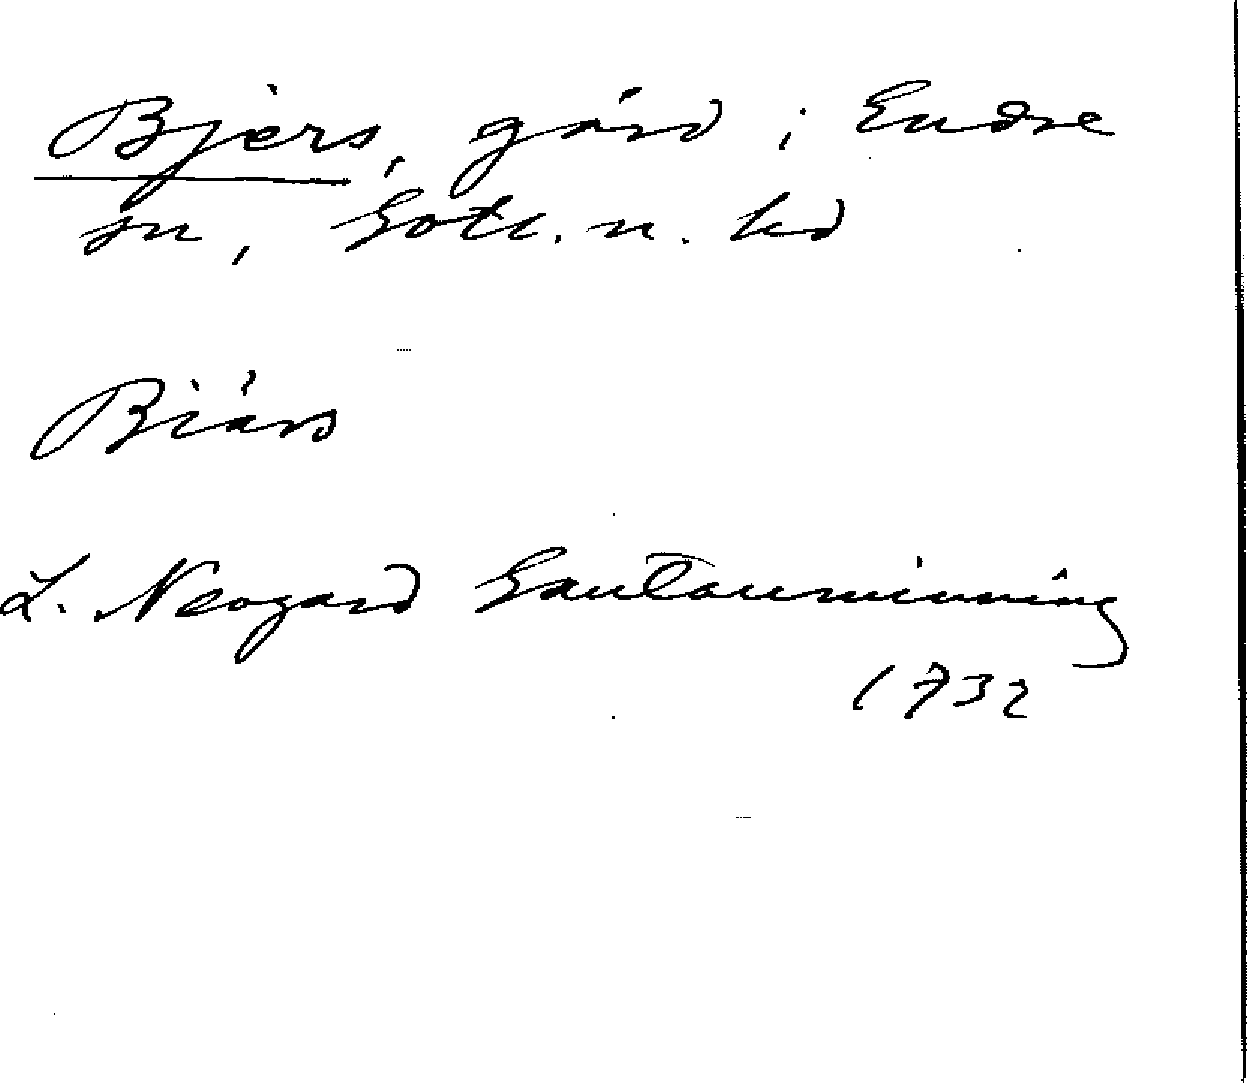 Bjers, gård i Endre
sn, Gotl. n. hd
Biärs
L. Neogard Gautauminning
1732